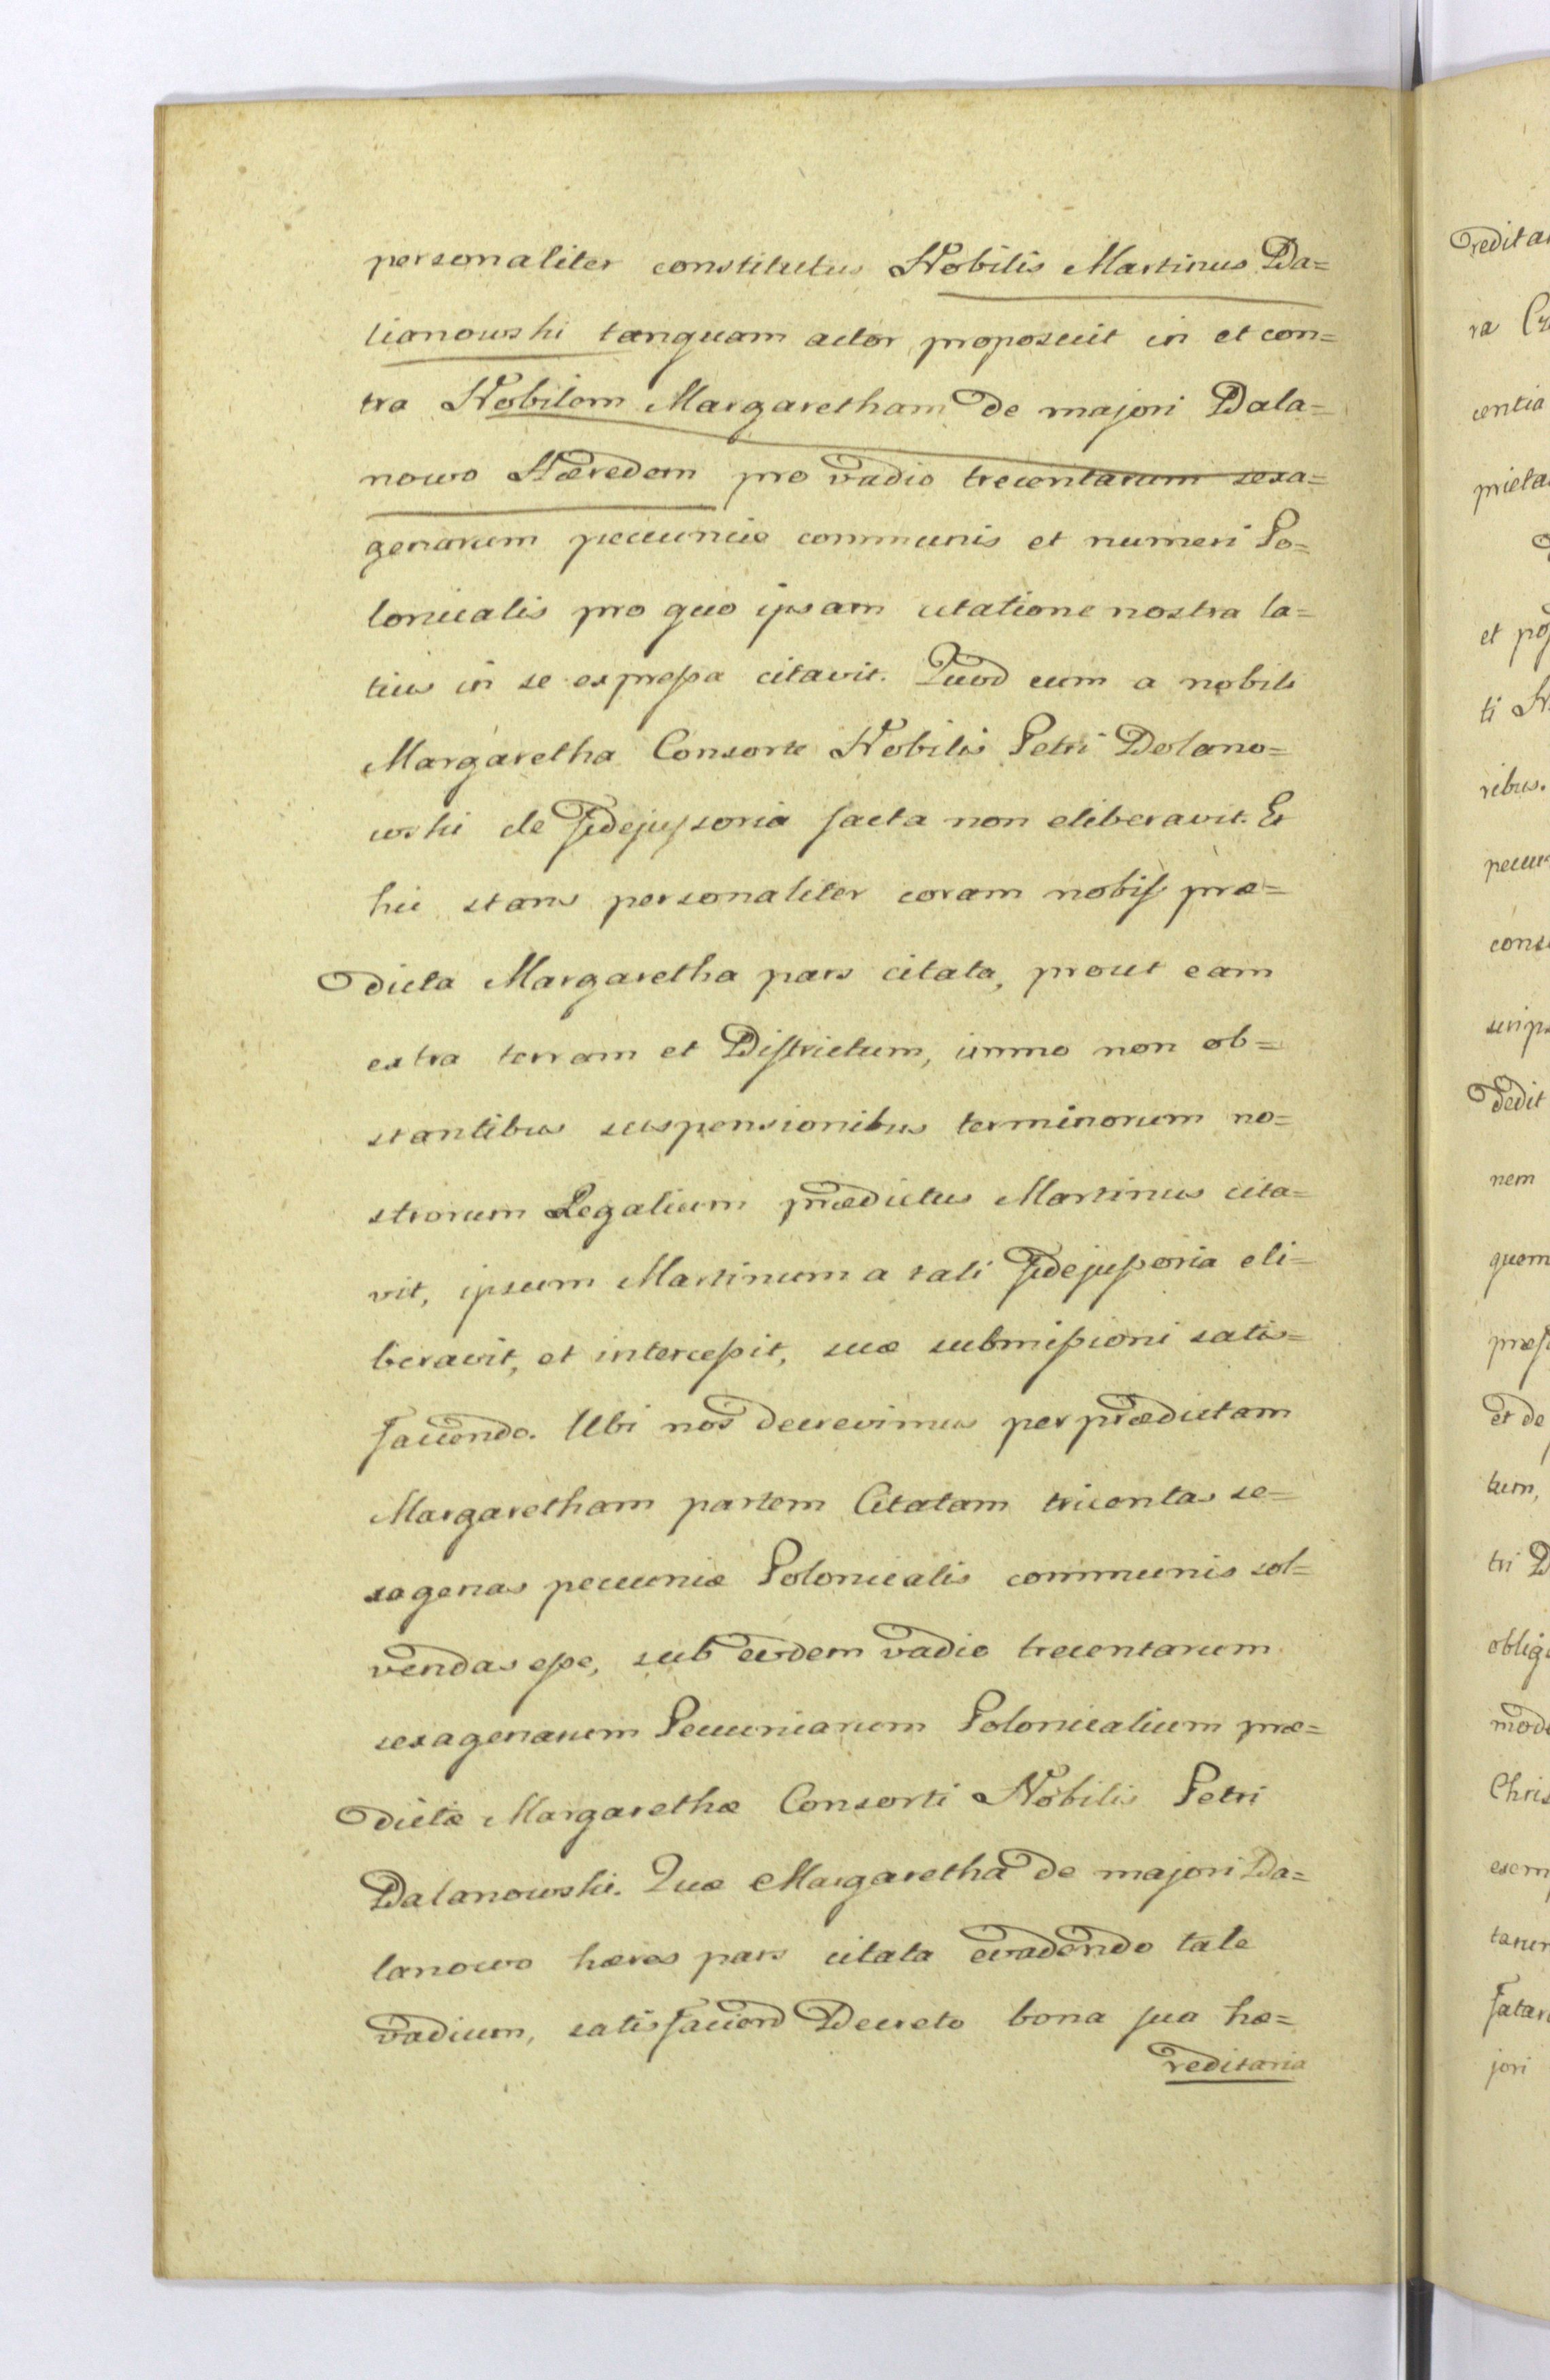 personaliter constitutus Nobilis Martinus Da=
lianowski tanquam actor proposuit in et con=
tra Nobilem Margaretham de majori Dala=
nowo Hæredem pro vadio trecentarum sexa=
genarum pecuniæ communis et numeri Po=
lonicalis pro quo ipsam citatione nostra la=
tius in se expreſsa citavit. Quod eum a nobili
Margaretha Consorte Nobilis Petri Dolano=
wski de fidejuſsoria facta non eliberavit. Et
hic stans personaliter coram nobiſ præ=
dicta Margaretha pars citata, prout eam
extra terram et Diſtrictum, immo non ob=
stantibus suspensionibus terminorum no=
strorum Legalium prædictus Martinus cita=
vit, ipsum Martinum a tali fidejuſsoria eli=
beravit, et interceſsit, suæ submiſsioni satis=
faciendo. Ubi nos decrevimus per prædictam
Margaretham partem Citatam tricentas se=
xagenas pecuniæ Polonicalis communis sol=
vendas eſse, sub eodem vadio trecentarum
sexagenarum Pecuniarum Polonicalium præ=
dictæ Margarethæ Consorti Nobilis Petri
Dalanowski. Quæ Margaretha de majori Da=
lanowo hæres pars citata evadendo tale
vadium, satisfaciend Decreto bona sua hæ=
reditaria
reditar
ra
centia
prieta
et poſ
ti
ribus.
pecun
cons
scrips
dedit
nem
quem
præſ
et de
tum,
tri D
oblig
mod
Chris
exem
tarum
fatar
jori